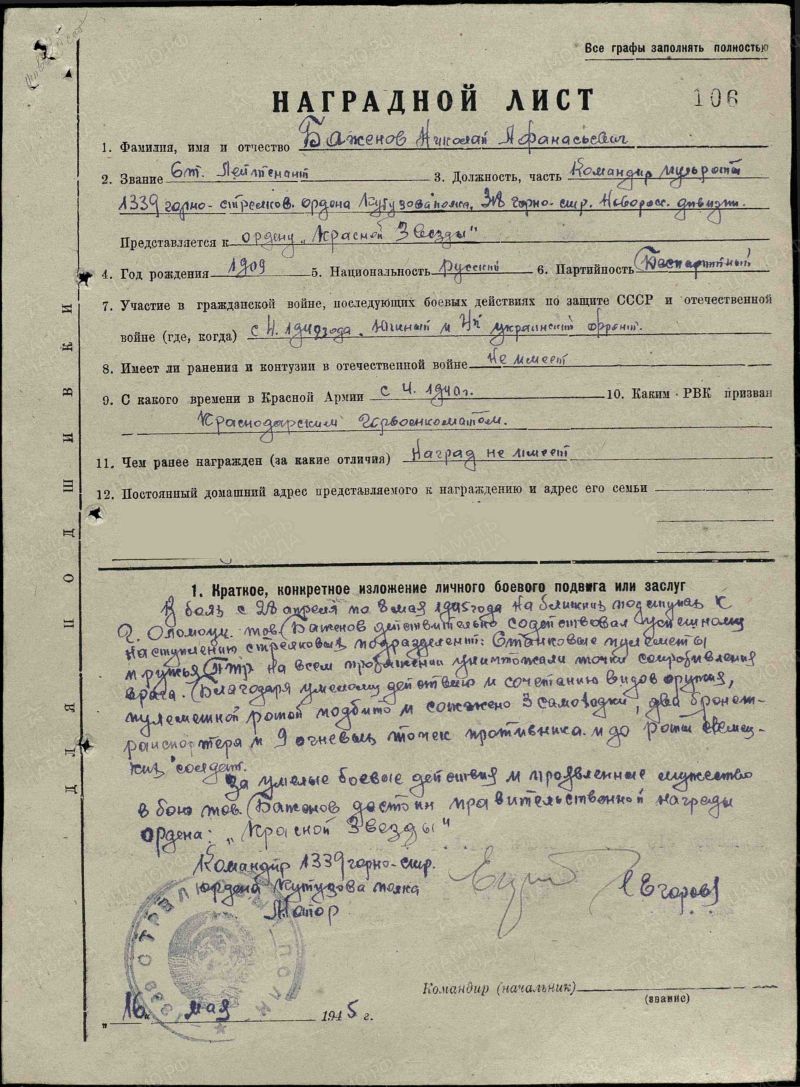 Все графы заполнять полностью
НАГРАДНОЙ ЛИСТ 106
1. Фамилия, имя и отчество Баженов Николай Афанасьевич
2. Звание Ст. Лейтенант 3. Должность, часть Командир пульроты
1339 горно-стрелков. ордена Кутузова полка, 318 горно-стр.Новорос. дивизии.
Представляется к ордену „Красной Звезды"
4. Год рождения 1909 5. Национальность Русский 6. Партийность Беспартийный
7. Участие в гражданской войне, последующих боевых действиях по защите СССР и отечественной
войне (где, когда) с 4. 1942 года. Южный и 4й украинский фронт.
8. Имеет ли ранения и контузии в отечественной войне Не имеет
9. С какого времени в Красной Армии с 4. 1940 г. 10. Каким РВК призван
Краснодарским Горвоенкоматом.
11. Чем ранее награжден (за какие отличия) Наград не имеет
12. Постоянный домашний адрес представляемого к награждению и адрес его семьи
ДЛЯ ПОДШИВКИ
1. Краткое, конкретное изложение личного боевого подвига или заслуг
В боях с 28 апреля по 8 мая 1945 года на ближних подступах к
г. Оломоуц тов. Баженов действительно содействовал успешному
наступлению стрелковых подразделений: Станковые пулеметы
и ружья ПТР на всем протяжении уничтожали точки сопротивления
врага. Благодаря умелому действию и сочетанию видов оружия,
пулеметной ротой подбито и сожжено 3 самоходки, два бронет-
ранспортера и 9 огневых точек противника и до роты немец-
ких солдат.
За умелые боевые действия и проявленные мужество
в бою тов. Баженов достоин правительственной награды
ордена: „Красной Звезды"
Командир 1339 горно-стр.
ордена Кутузова полка
Майор Егоров
1339 СТРЕЛКОВЫЙ ПОЛК
Командир (начальник)
(звание)
„16" мая 1945 г.